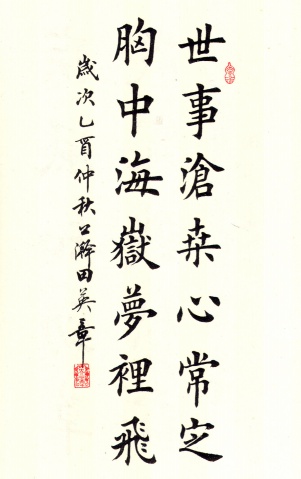 世事滄桒心常定
胸中海嶽夢裡飛
歲次乙酉仲秋 田英章